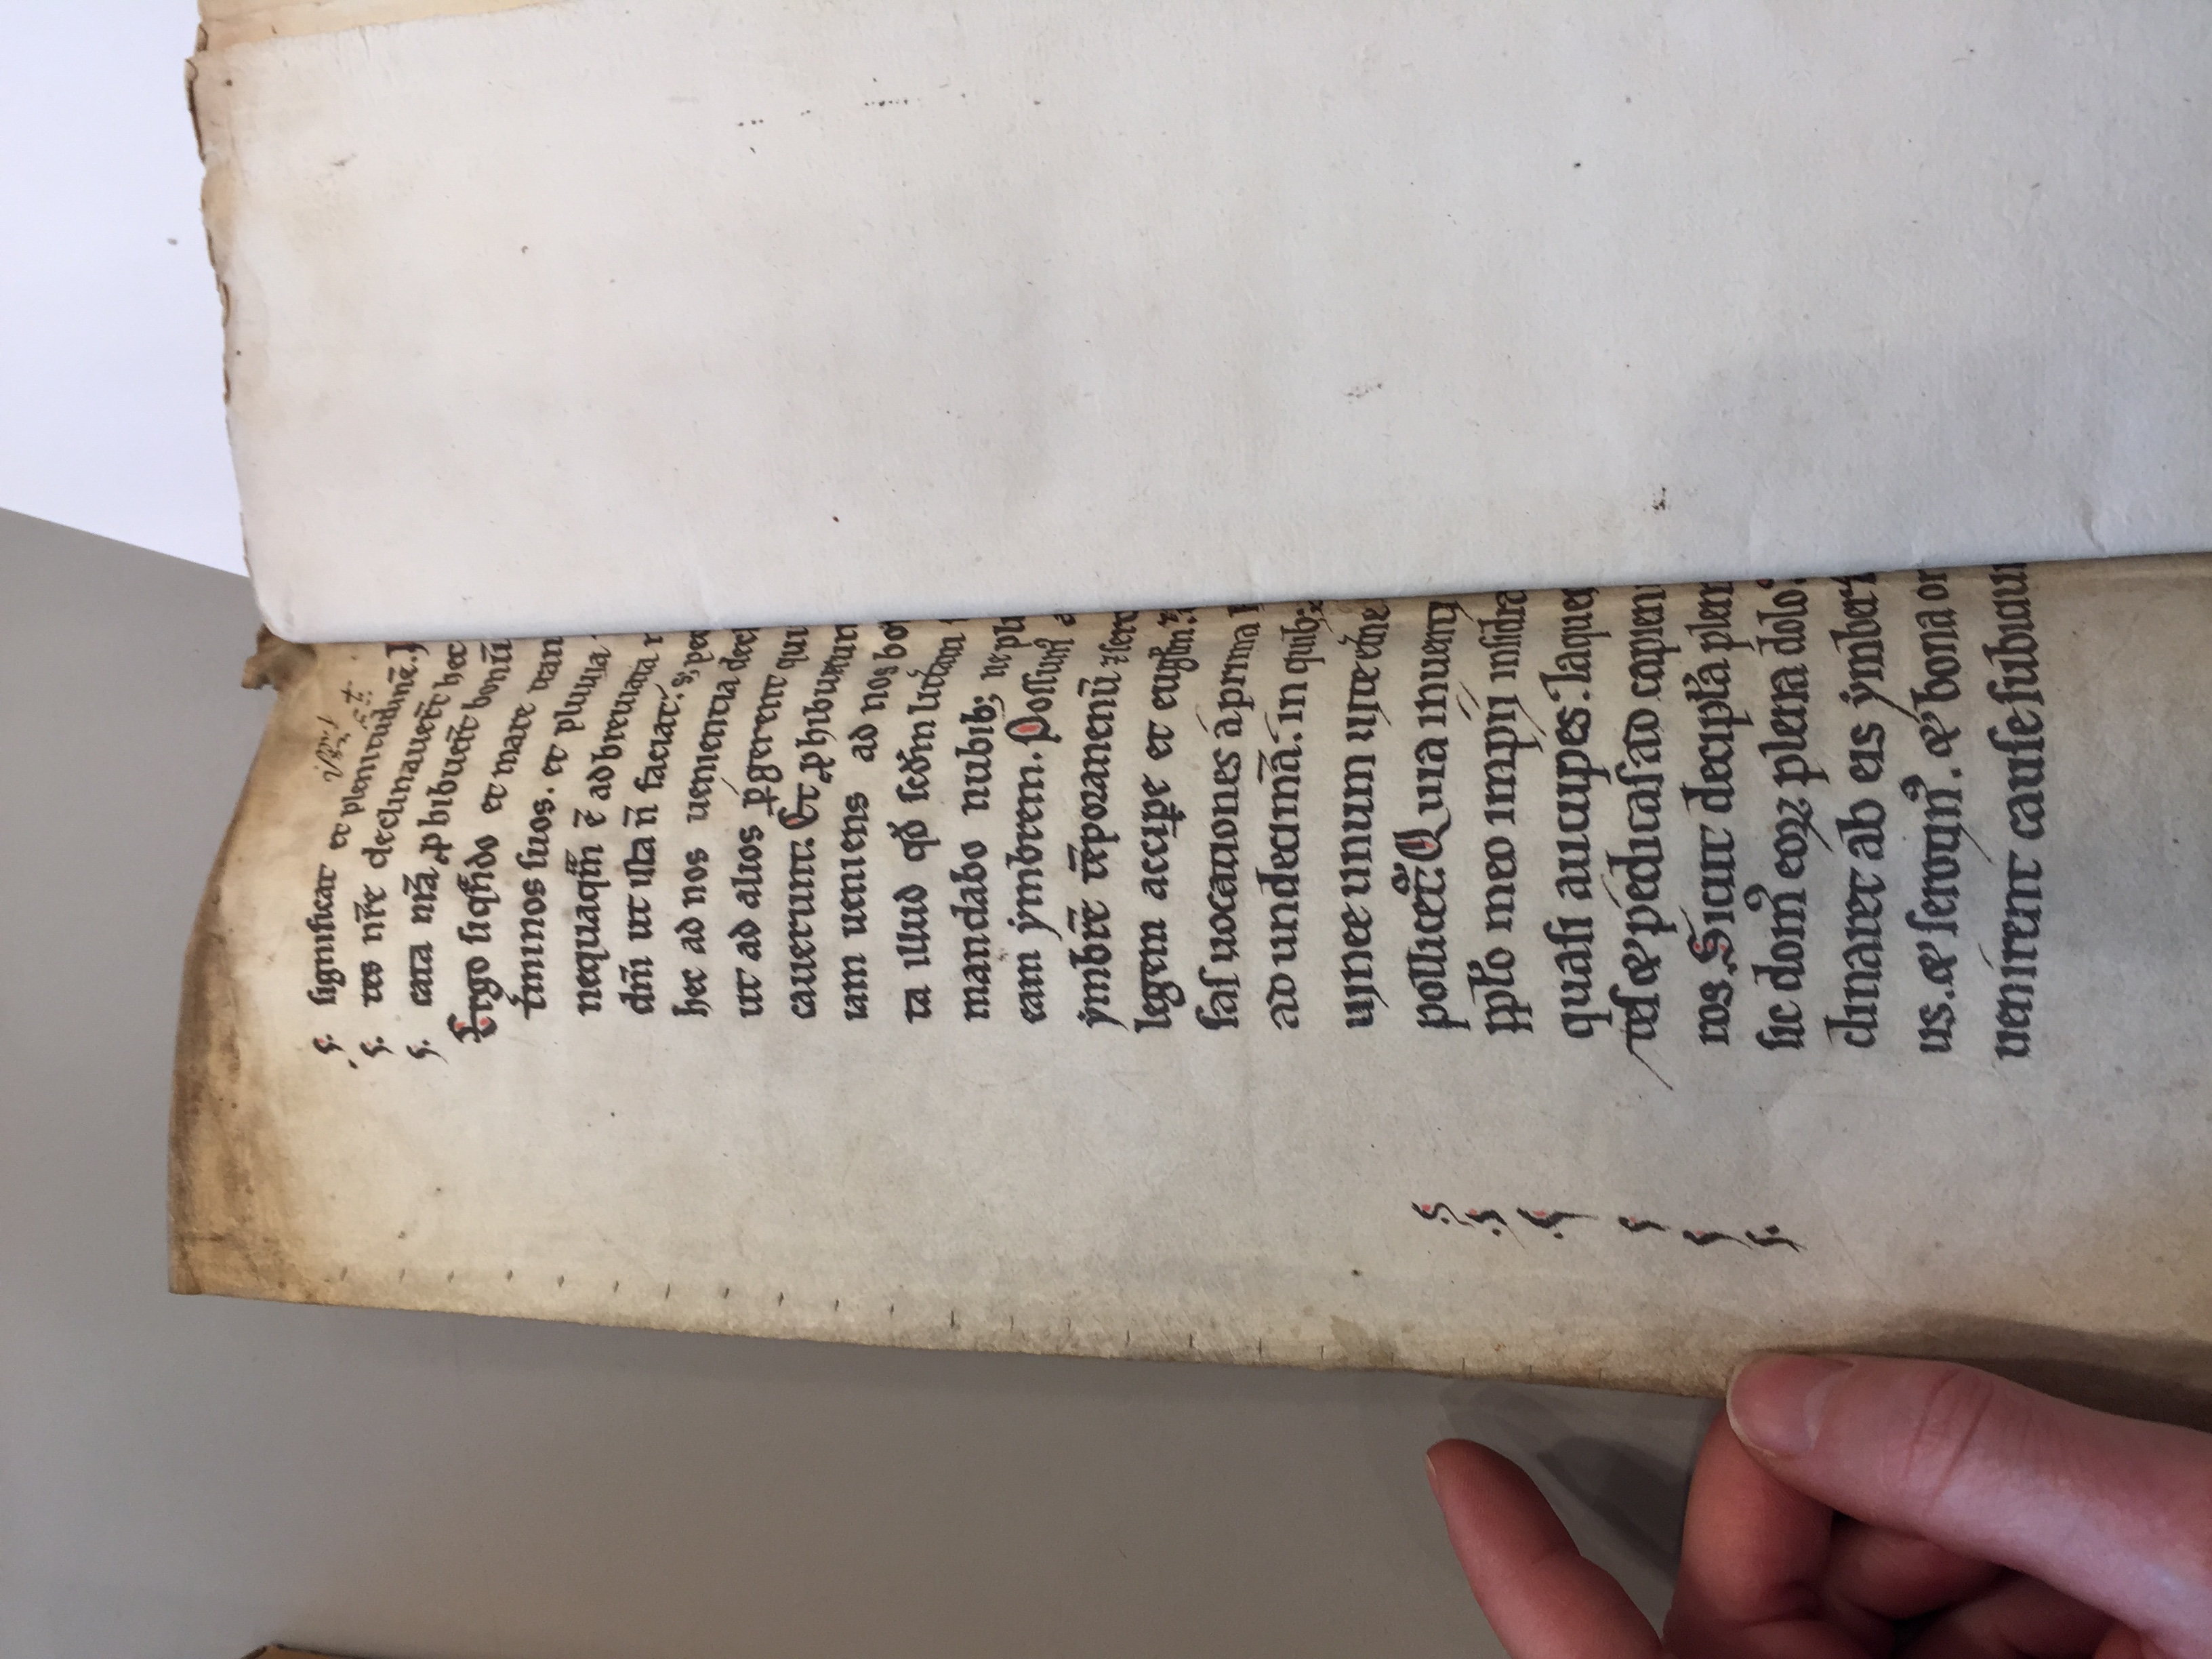 ſ. ſignificat et plenitudinē.
ſ. tes nr̄e declinauer̄t hec
ſ. cata nr̄a ꝓhibuer̄t bonū
Ergo ſi qn̄do et mare tran
t̾minos ſuos. et pluuia
nequaqm̄ ē adbreuiata
dm̄ ut iſta n̄ faciat: s; pec
hec ad nos uenientia decl
ut ad alios ꝑgerent qui
cauerunt. Et ꝓhibuerun
iam ueniens ad nos bo
ta illud qđ ſcđm litt̾am
mandabo nubib; ne plu
eam ẏmbrem. Poſſumꝰ a
ẏmbrē tēporanenū ⁊ ſero
legem accip̱e et eugłm.
ſaſ uocationes á prima
ad undecimā: in quib;
uinee unum uite et̾ne
pollicet᷑. Quia inuenti
ppło meo impíí inſidia
quaſi aucupes: laque
teſ & pédicaſ ad capien
ros. Sicut decipła plen
ſic domꝰ eoꝝ plena dolo
clinaret ab eis ẏmber
us. & ſerotinꝰ. & bona
uenírent cauſe ſubiciu
ſ
ſ
ſ
ſ
ſ
ſ.